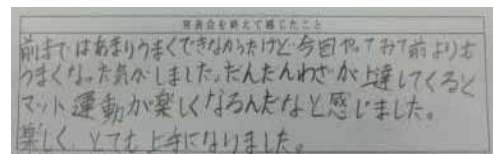 発表会を終えて感じたこと
前まではあまりうまくできなかったけど今回やってみて前よりも
うまくなった気がしました。だんだんわざが上達してくると
マット運動が楽しくなるんだなと感じました。
楽しく、とても上手になりました。